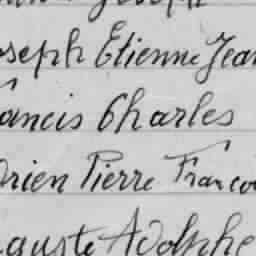 Joseph
oseph Etienne Jean
rancis Charles
drien Pierre Françoi
uguste Adolphe